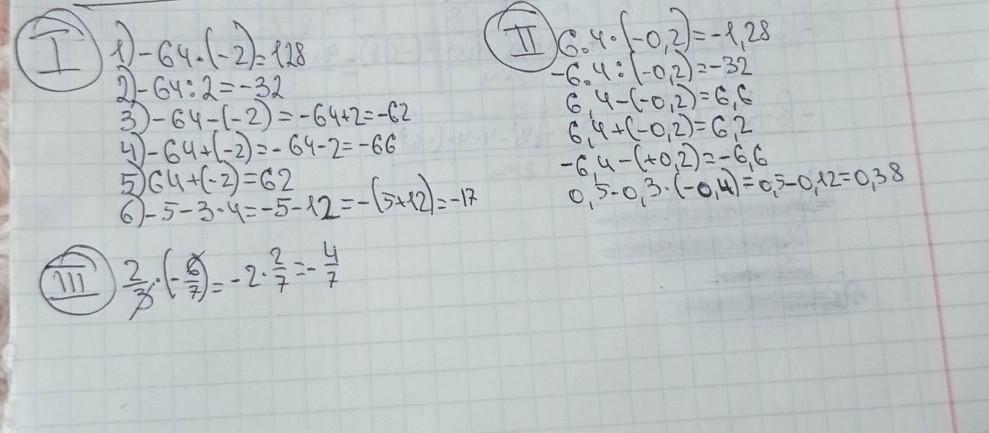 I
1) -64·(-2)=128
2) -64:2=-32
3) -64-(-2)=-64+2=-62
4) -64+(-2)=-64-2=-66
5) 64+(-2)=62
6) -5-3·4=-5-12=-(5+12)=-17
II
6.4·(-0,2)=-1,28
-6.4:(-0,2)=-32
6,4-(-0,2)=6,6
6,4+(-0,2)=6,2
-6,4-(+0,2)=-6,6
0,5-0,3·(-0,4)=0,5-0,12=0,38
III
2/3·(-6/7)=-2·2/7=-4/7